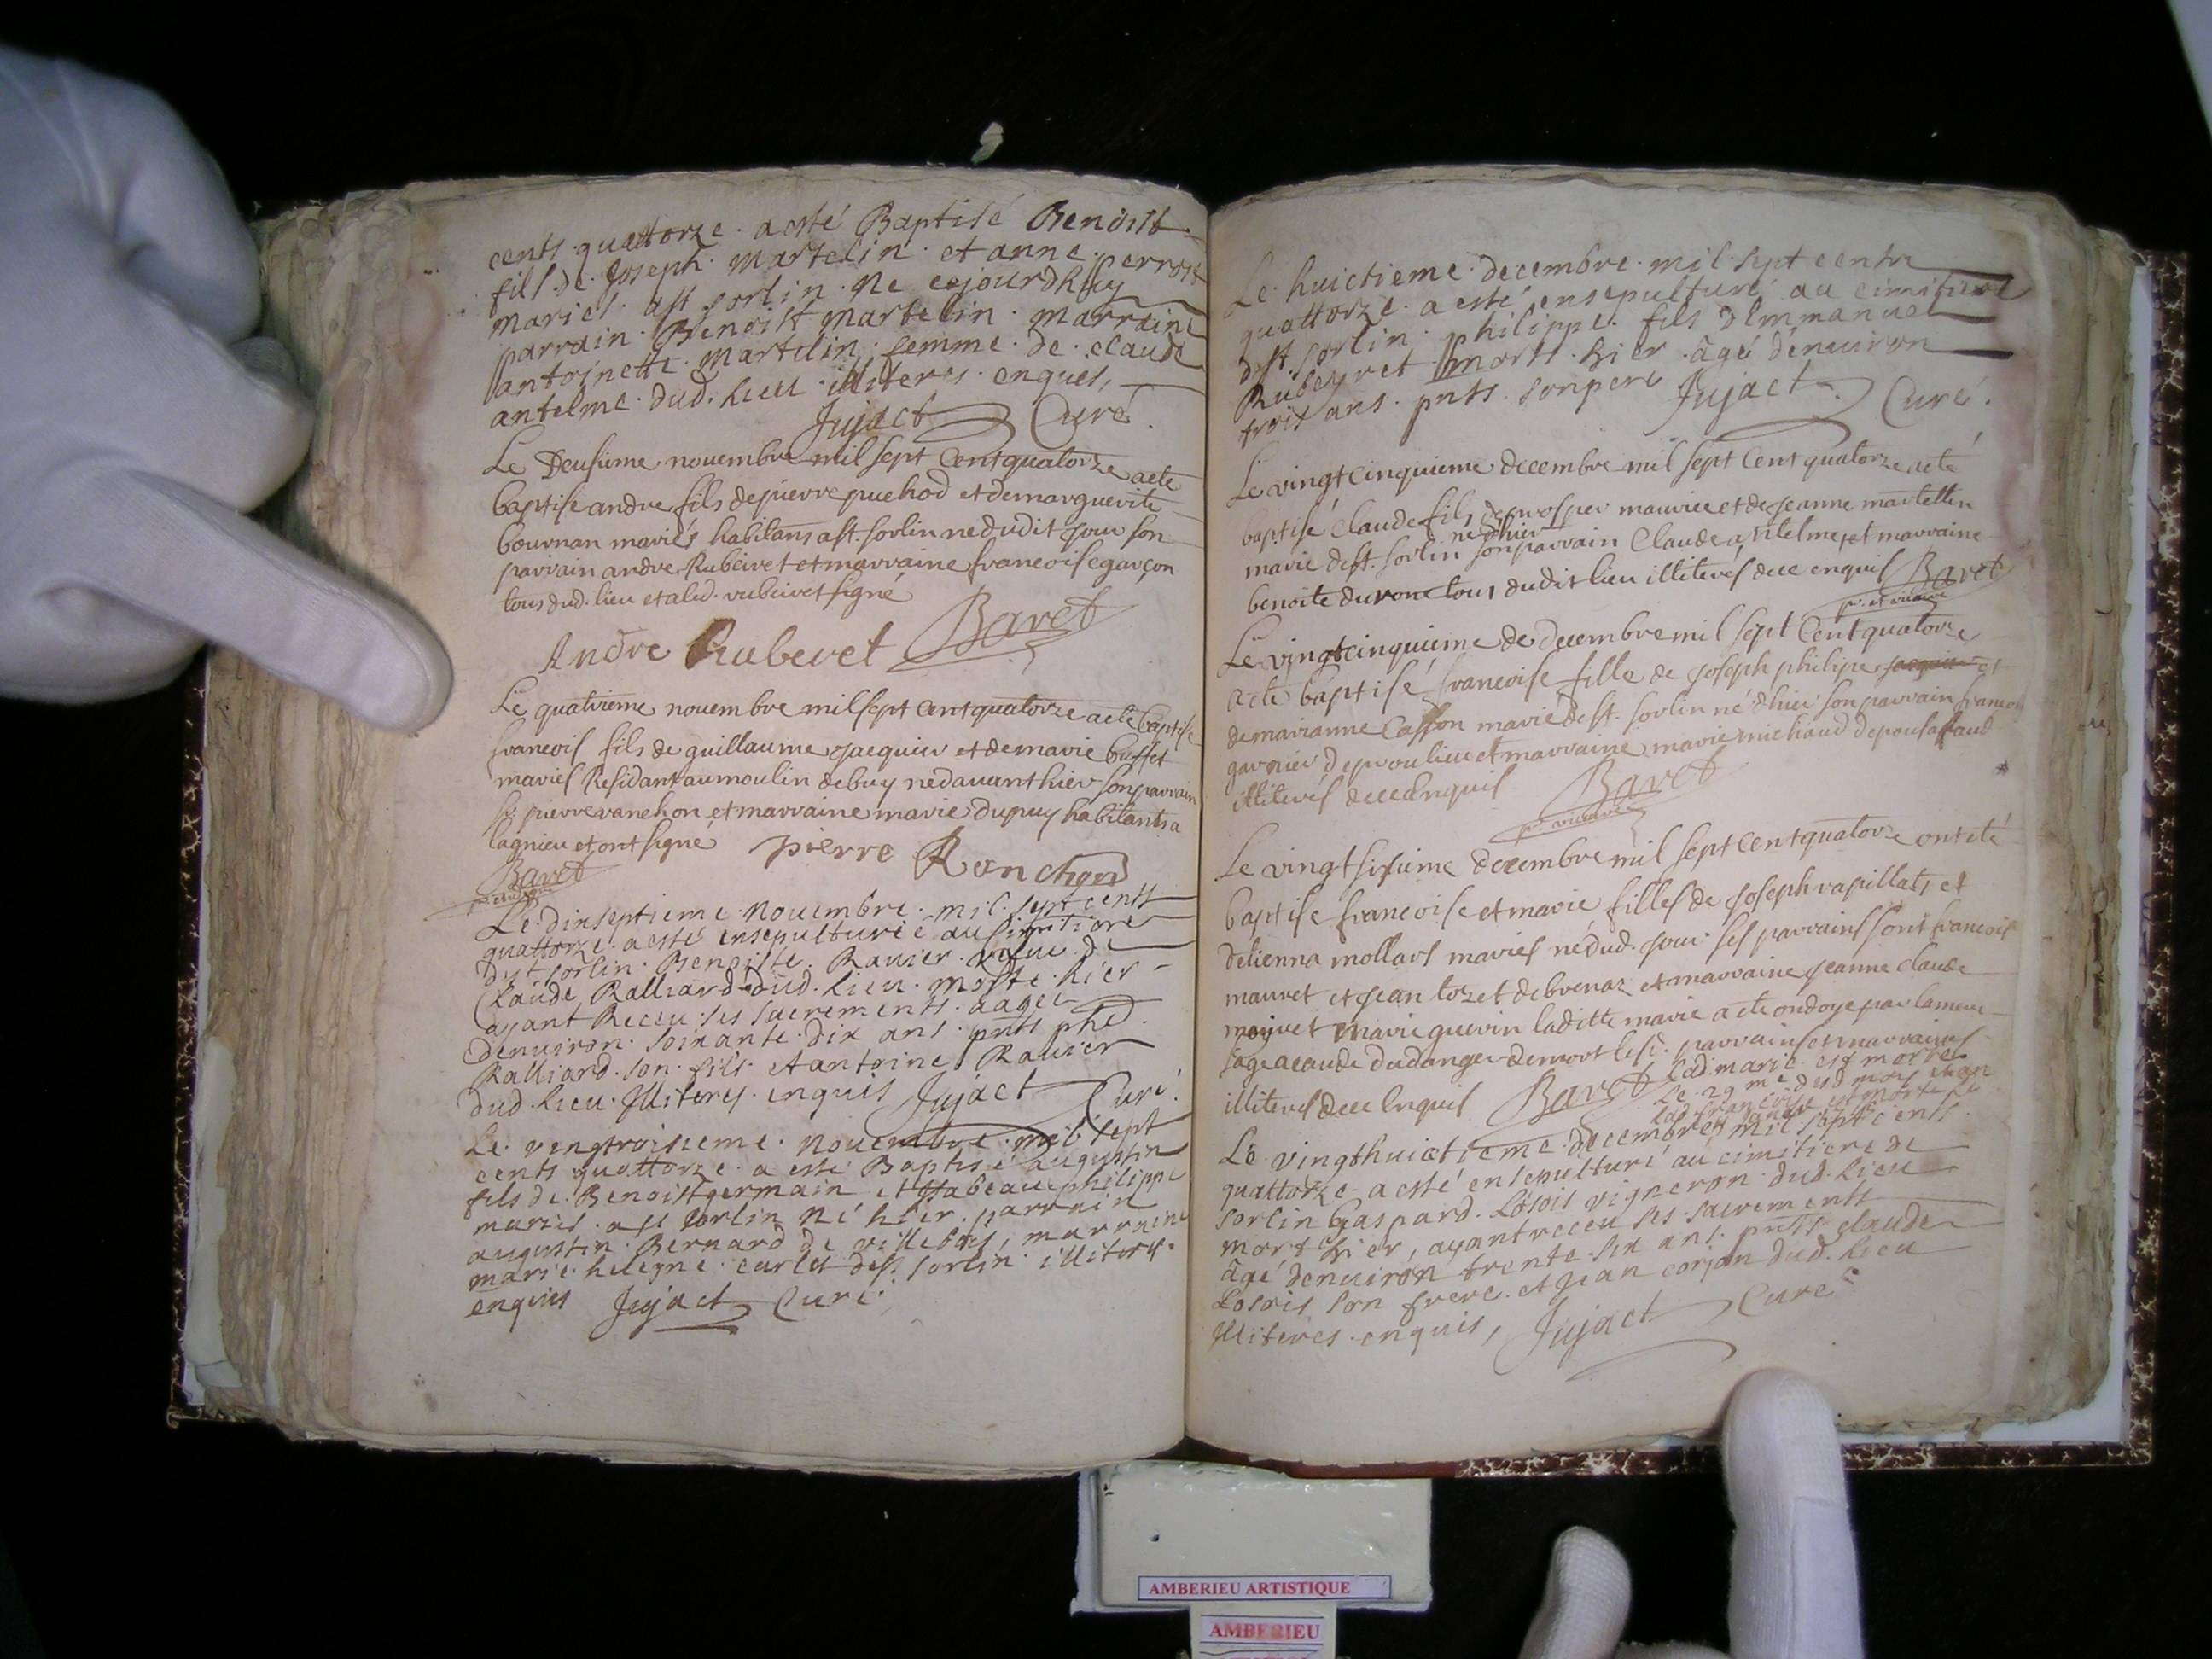 cents quattorze a esté Baptisé Benoist
fils de Joseph Martelin et anne perron
mariés a st sorlin ne cejourdhuy
parrain Benoist martelin marraine
antoinette martelin femme de claude
antelme dud. lieu illiteres enquis,
Jujact Curé.
Le Deusieme novembre mil sept Cent quatorze a ete
baptise andre fils de pierre puchod et de marguerite
bournan mariés habitans a st. sorlin ne dudit jour son
parrain andre Rubeiret et marraine francoise garçon
tous dud. lieu et a led. rubeiret signé
Andre Ruberet Baret
Le quatrieme novembre mil sept Cent quatorze a ete baptise
francois fils de guillaume jacquier et de marie buffet
mariés Residant au moulin de buy ne davant hier son parrain
sr. pierre ranchon et marraine marie dupuy habitants a
lagnieu et ont signé pierre Ronchon
Baret
Le dixseptieme novembre mil sept cents
quattorze a esté ensepulturée au simitiere
de st sorlin Benoiste Ravier vefue de
Claude Ralliard dud. lieu morte hier
ayant Receu ses sacrements aagee
denviron soixante dix ans pnts phd.
Ralliard son fils et antoine Ravier
dud. lieu Illiteres enquis Jujact Curé.
Le vingtroisieme novembre mil sept
cents quattorze a esté Baptisé augustin
fils de Benoist germain et ysabeau philippe
mariés a st sorlin né hier parrain
augustin Bernard de villebois, marraine
marie helegne curlet de st. sorlin illiteres
enquis Jujact Curé.
Le huictieme decembre mil sept cents
quattorze a esté ensepulturé au cimitiere
de st sorlin philippe fils dEmmanuel
Rubeyret mort hier âgé denviron
trois ans pnts son pere Jujact Curé.
Le vingtcinquieme decembre mil sept Cent quatorze a eté
baptisé Claude fils de prosper maurice et de jeanne martellin
marié de st. sorlin ne dhier son parrain Claude antelme et marraine
benoite durone tous dudit lieu illiterés de ce enquis Baret
pr. et vicaire
Le vingtcinquieme de decembre mil sept Cent quatorze
a ete baptisé francoise fille de joseph philipe et
de marianne Casson marié de st. sorlin né dhier son parrain francois
garnier de proulieu et marraine marie michaud de pousaffaud
illiterés de ce enquis Baret
pr. vicaire
Le vingtsixieme decembre mil sept Cent quatorze ont eté
baptise francoise et marie filles de joseph vapillat et
detienna mollars mariés né dud. jour ses parrains sont francois
mauret et jean tozet de brenaz et marraine jeanne claude
et marie guerin laditte marie a ete ondoye par la mere
sage a cause du danger de mort lesd. parrains et marraines
illiterés de ce enquis Baret Lad marie est morte
le 29me dud mois
lad francoise est morte le
Le vingthuictieme decembre mil sept cents
quattorze a esté ensepulturé au cimitiere de
sorlin Gaspard Losois vigneron dud. lieu
mort hier, ayant receu ses sacrements
âgé denviron trente six ans. pnts claude
Losois son frere et jean corjon dud. lieu
Illiteres enquis, Jujact Curé
AMBERIEU ARTISTIQUE
AMBERIEU